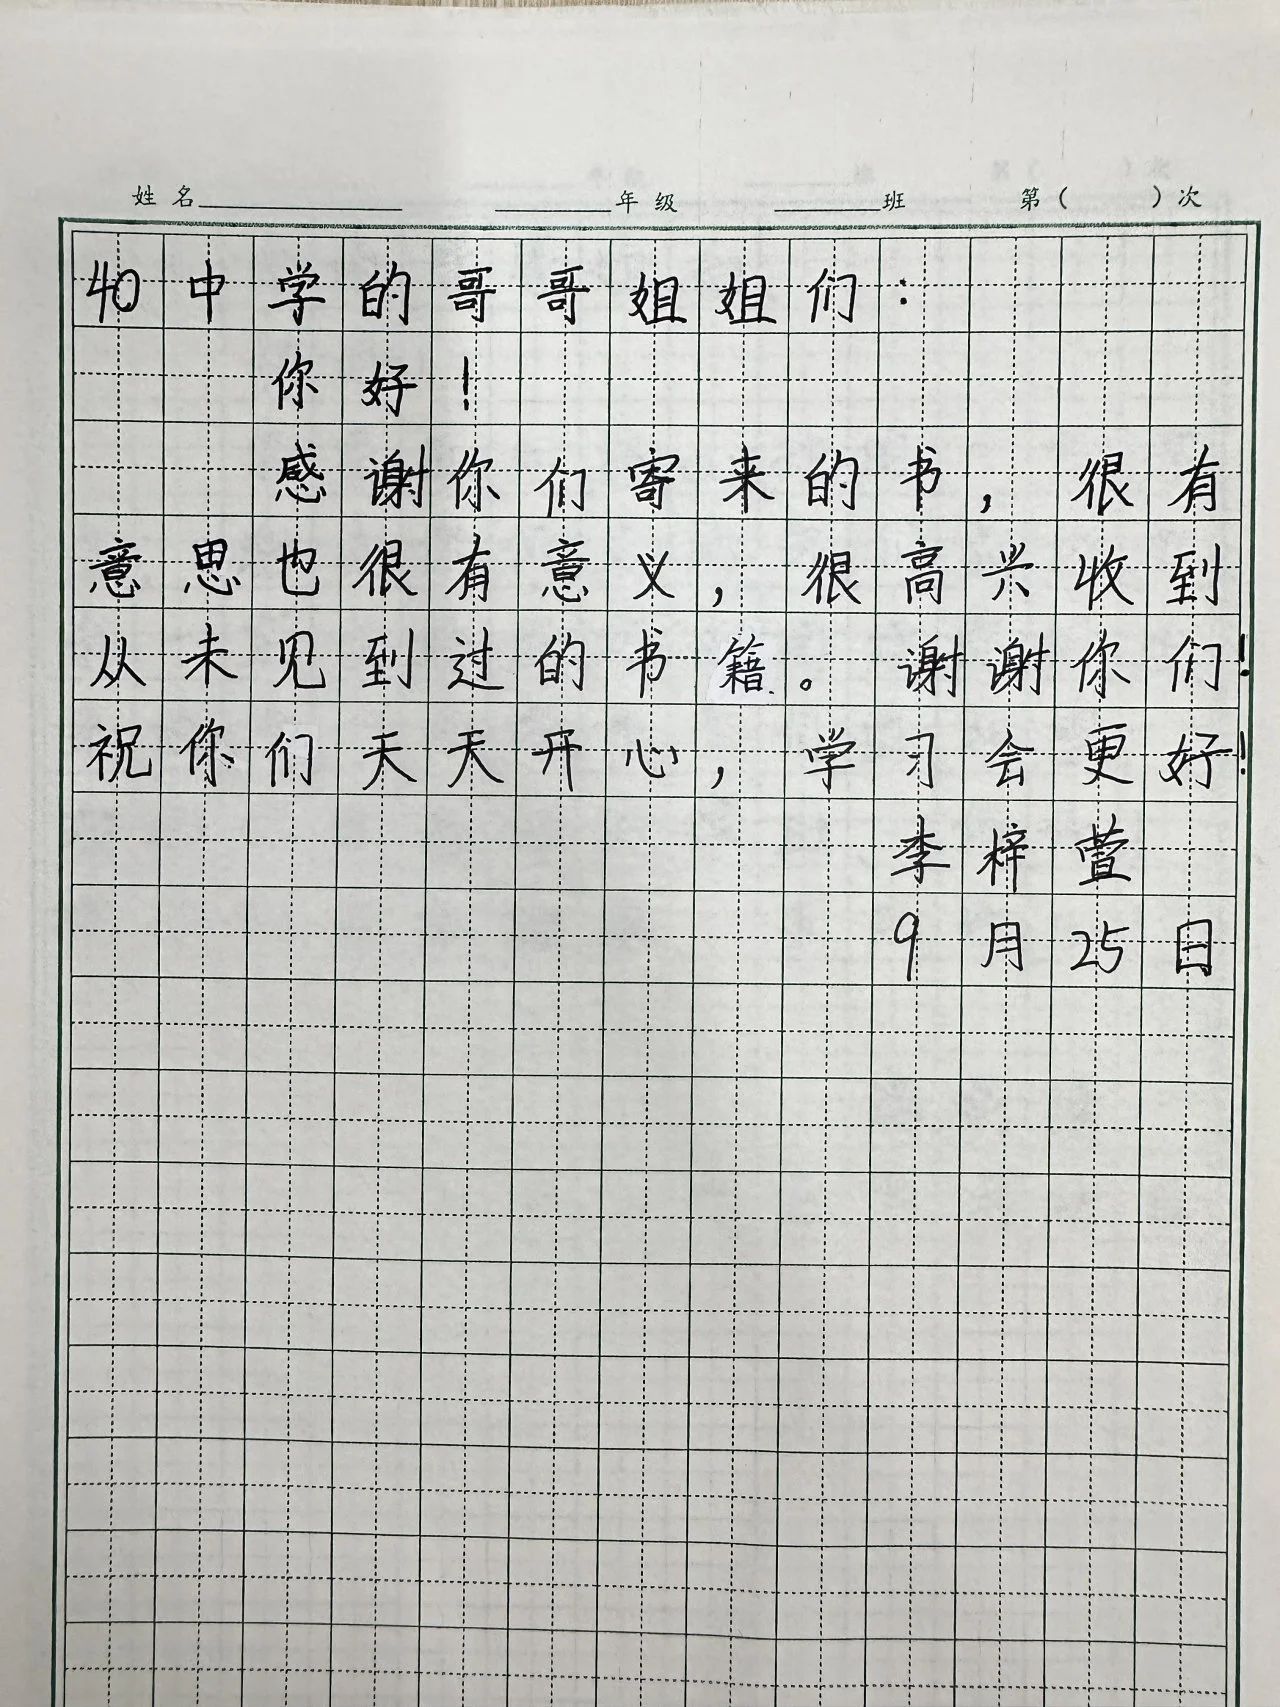 姓名 年级 班 第( )次
40中学的哥哥姐姐们：
你好！
感谢你们寄来的书，很有
意思也很有意义，很高兴收到
从未见到过的书籍。谢谢你们！
祝你们天天开心，学习会更好！
李梓萱
9月25日